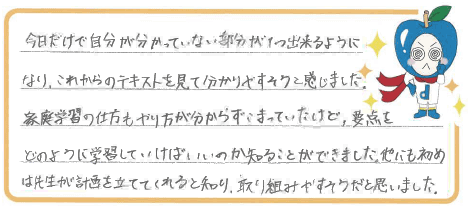 今日だけで自分が分かっていない部分が1つ出来るように
なり、これからのテキストを見て分かりやすそうと感じました。
家庭学習の仕方もやり方が分からずこまっていたけど、要点を
どのように学習していけばいいのか知ることができました。他にも初め
は先生が計画を立ててくれると知り、取り組みやすそうだと思いました。
d